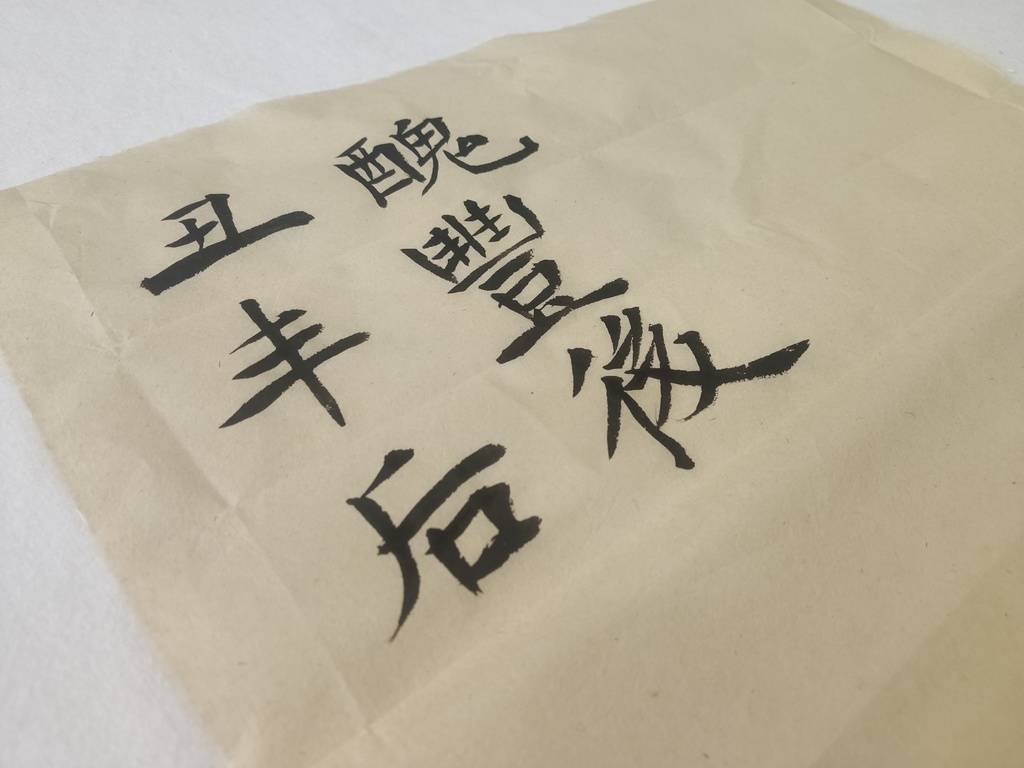 醜豐後
丑丰后